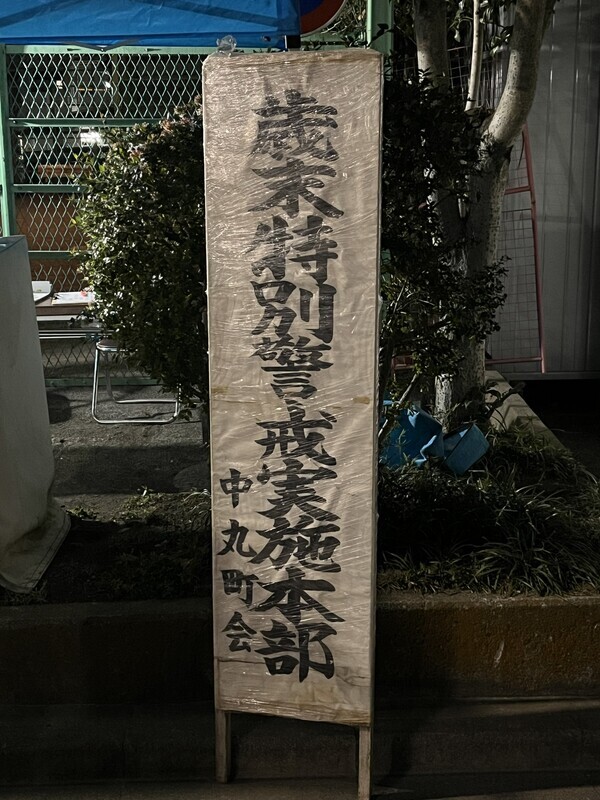 歳末特別警戒実施本部
中丸町会